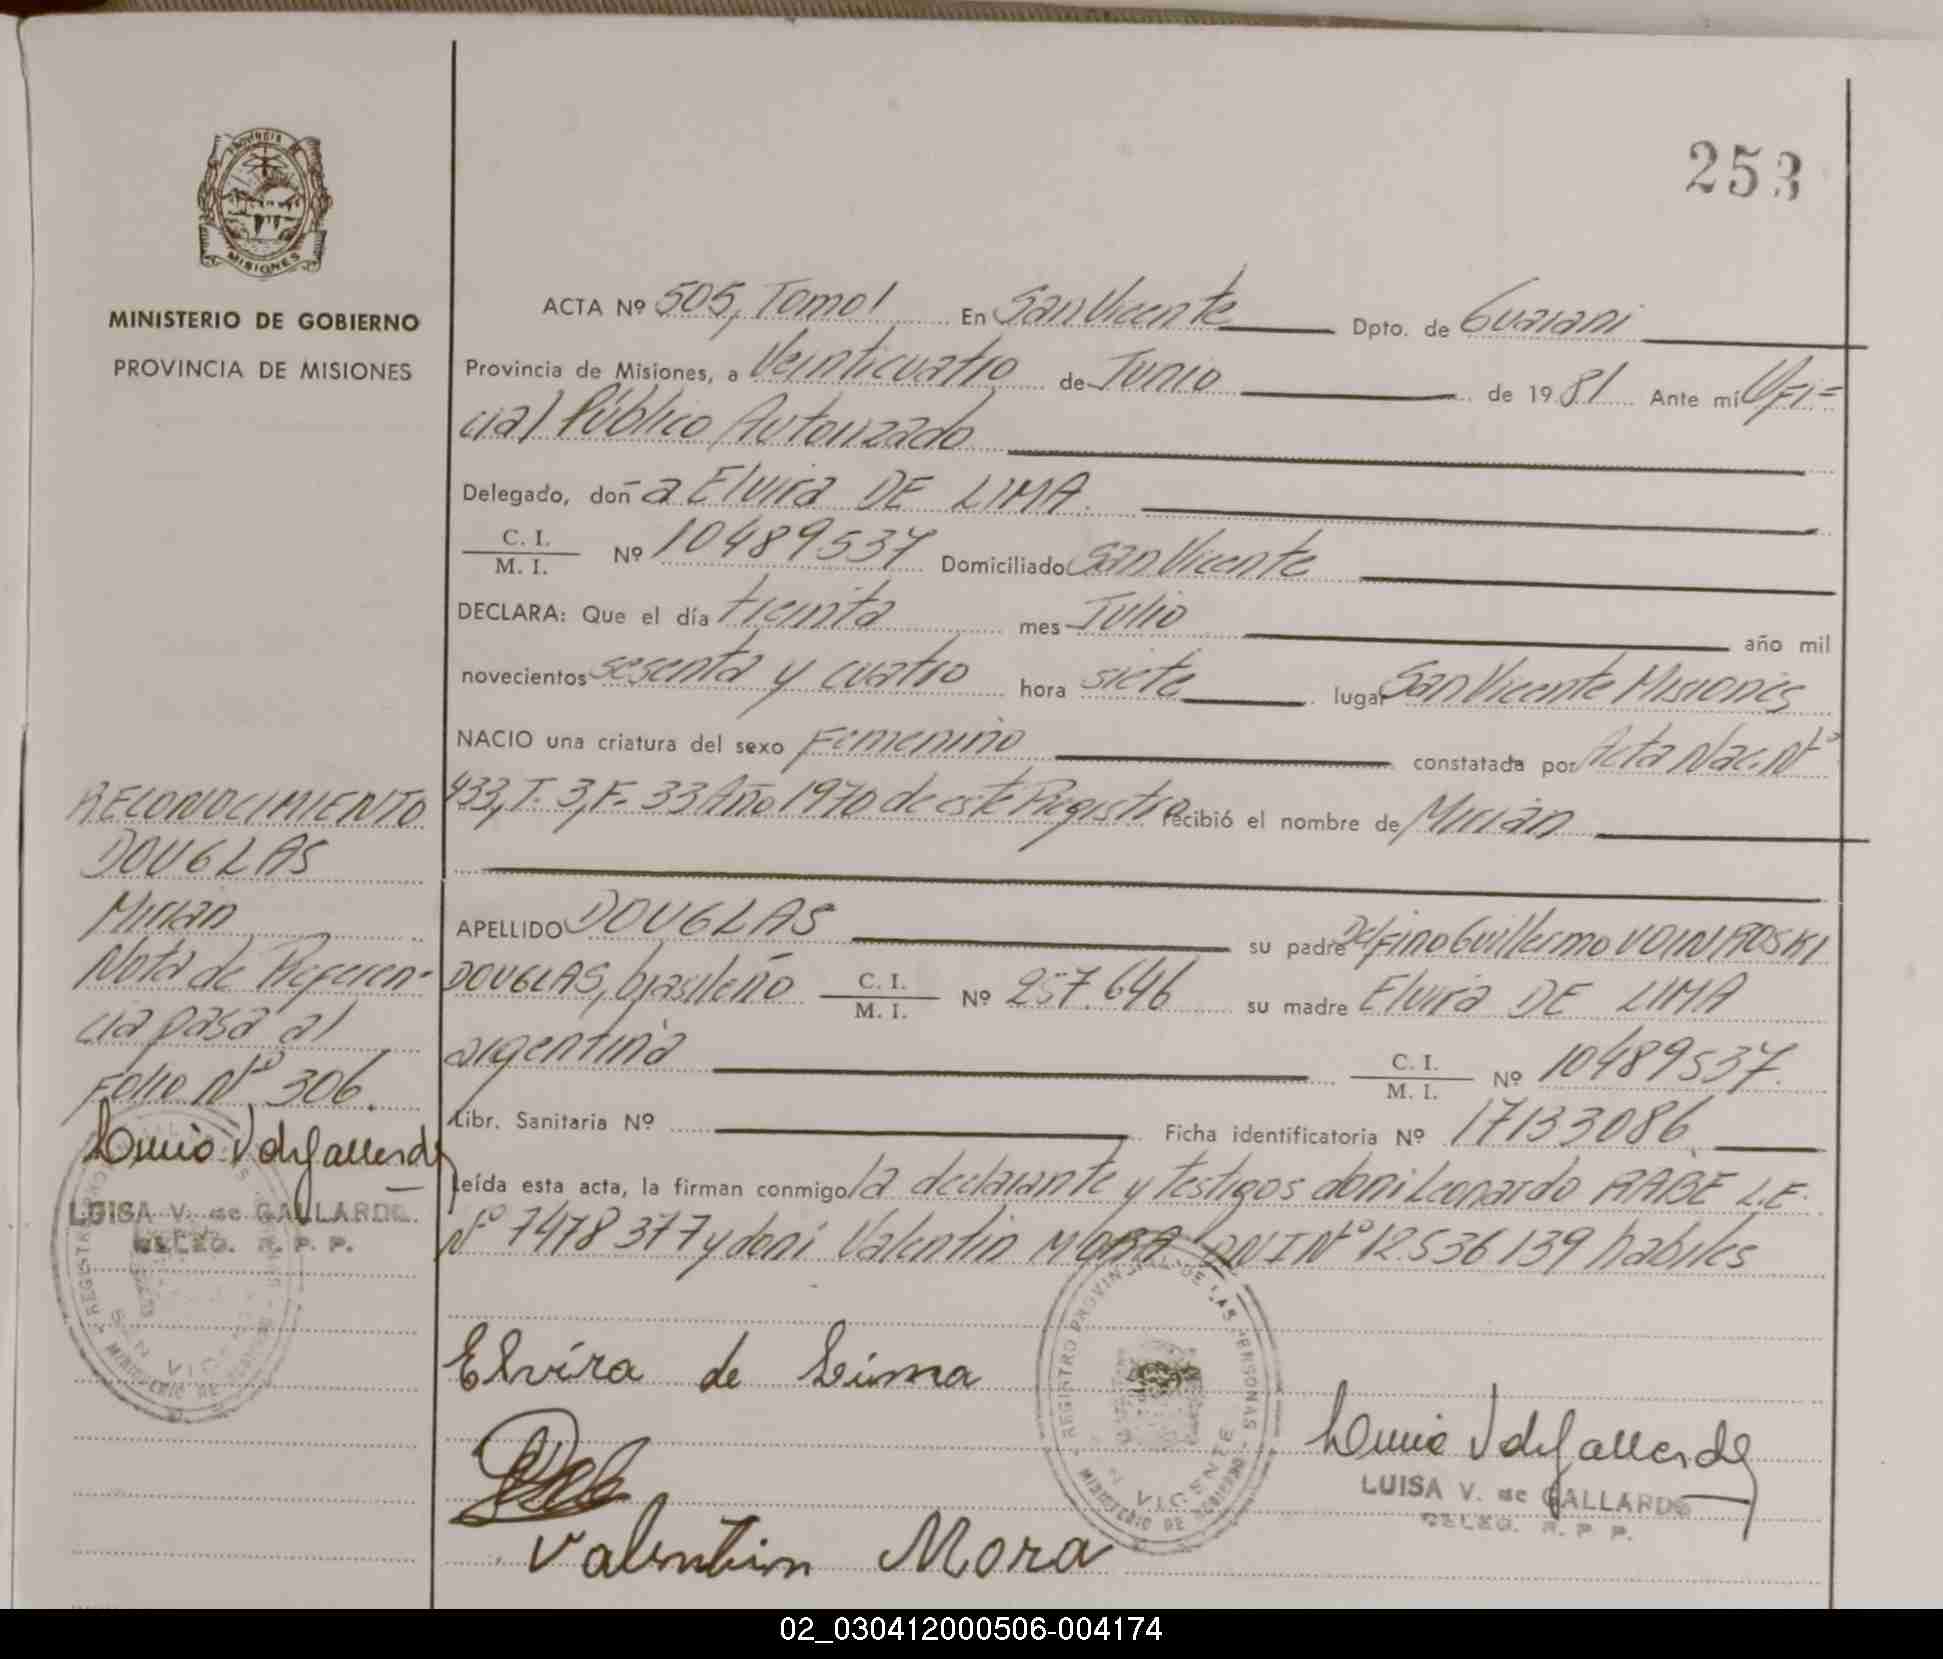 253
PROVINCIA DE
MISIONES
MINISTERIO DE GOBIERNO
PROVINCIA DE MISIONES
ACTA Nº 505, Tomo 1 En San Vicente Dpto. de Guaraní
Provincia de Misiones, a Veinticuatro de Junio de 1981 Ante mí Ofi=
cial Público Autorizado
Delegado, doña Elvira DE LIMA
C. I. / M. I. Nº 10489537 Domiciliado San Vicente
DECLARA: Que el día treinta mes Julio año mil
novecientos sesenta y cuatro hora siete lugar San Vicente Misiones
NACIO una criatura del sexo Femenino constatada por Acta Nac. Nº
433, T. 3, F. 33 Año 1970 de este Registro recibió el nombre de Mirian
APELLIDO DOUGLAS su padre Delfino Guillermo VOINAROSKI
DOUGLAS, brasileño C. I. / M. I. Nº 257.646 su madre Elvira DE LIMA
argentina C. I. / M. I. Nº 10489537.
Libr. Sanitaria Nº Ficha identificatoria Nº 17133086
Leída esta acta, la firman conmigo la declarante y testigos don: Leonardo RABE L.E.
Nº 7478377 y don: Valentin MORA DNI Nº 12536139 habiles
RECONOCIMIENTO
DOUGLAS
Mirian
Nota de Referen-
cia pasa al
Folio Nº 306.
LUISA V. de GALLARDO
DELEG. R. P. P.
Elvira de Lima
Valentin Mora
REGISTRO PROVINCIAL DE LAS PERSONAS
VICENTE
MINISTERIO DE GOBIERNO
LUISA V. de GALLARDO
DELEG. R. P. P.
02_030412000506-004174